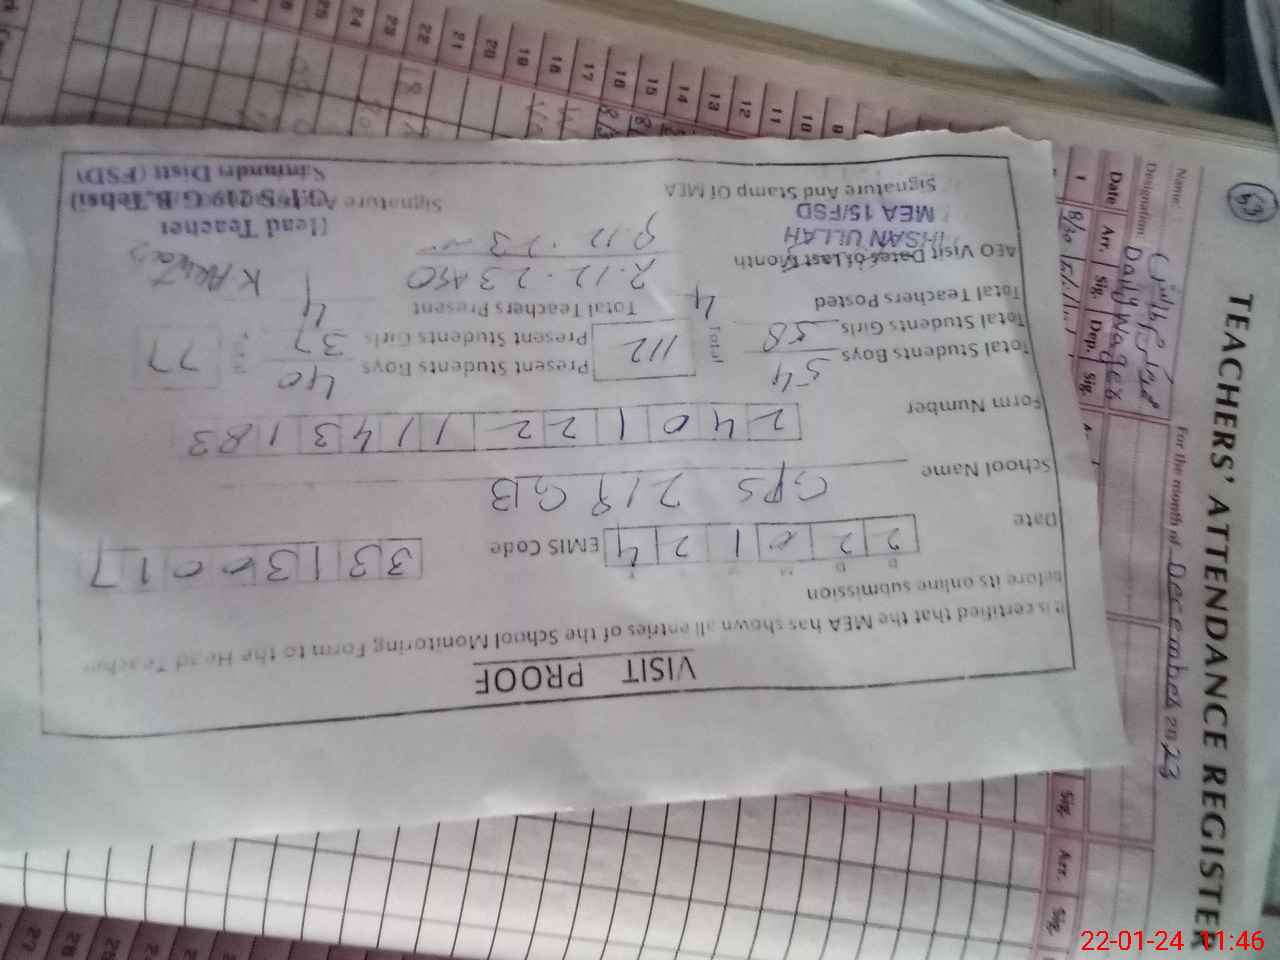 VISIT PROOF
It is certified that the MEA has shown all entries of the School Monitoring Form to the Head Teacher
before its online submission
Date 220124 EMIS Code 33130017
School Name GPS 219 GB
Form Number 2401221143183
Total Students Boys 54 Total 112 Present Students Boys 40 77
Total Students Girls 58 Present Students Girls 37
Total Teachers Posted 4 Total Teachers Present 4
AEO Visit Dates of Last Month 2.12.23
9.12.23
IHSAN ULLAH
MEA 15/FSD
Signature And Stamp Of MEA
Head Teacher
G.P.S 219 G.B. Tehsil
Samundri Distt (FSD)
TEACHERS' ATTENDANCE REGISTER
53
Name:
For the month of December 2023
Designation: Daily Wages
Date Arr. Sig. Dep. Sig.
1 8/30
Sig. Arr. Sig.
8 10 11 12 13 14 15 16 17 18 19 20 21 22 23 24 25
27
22-01-24 11:46